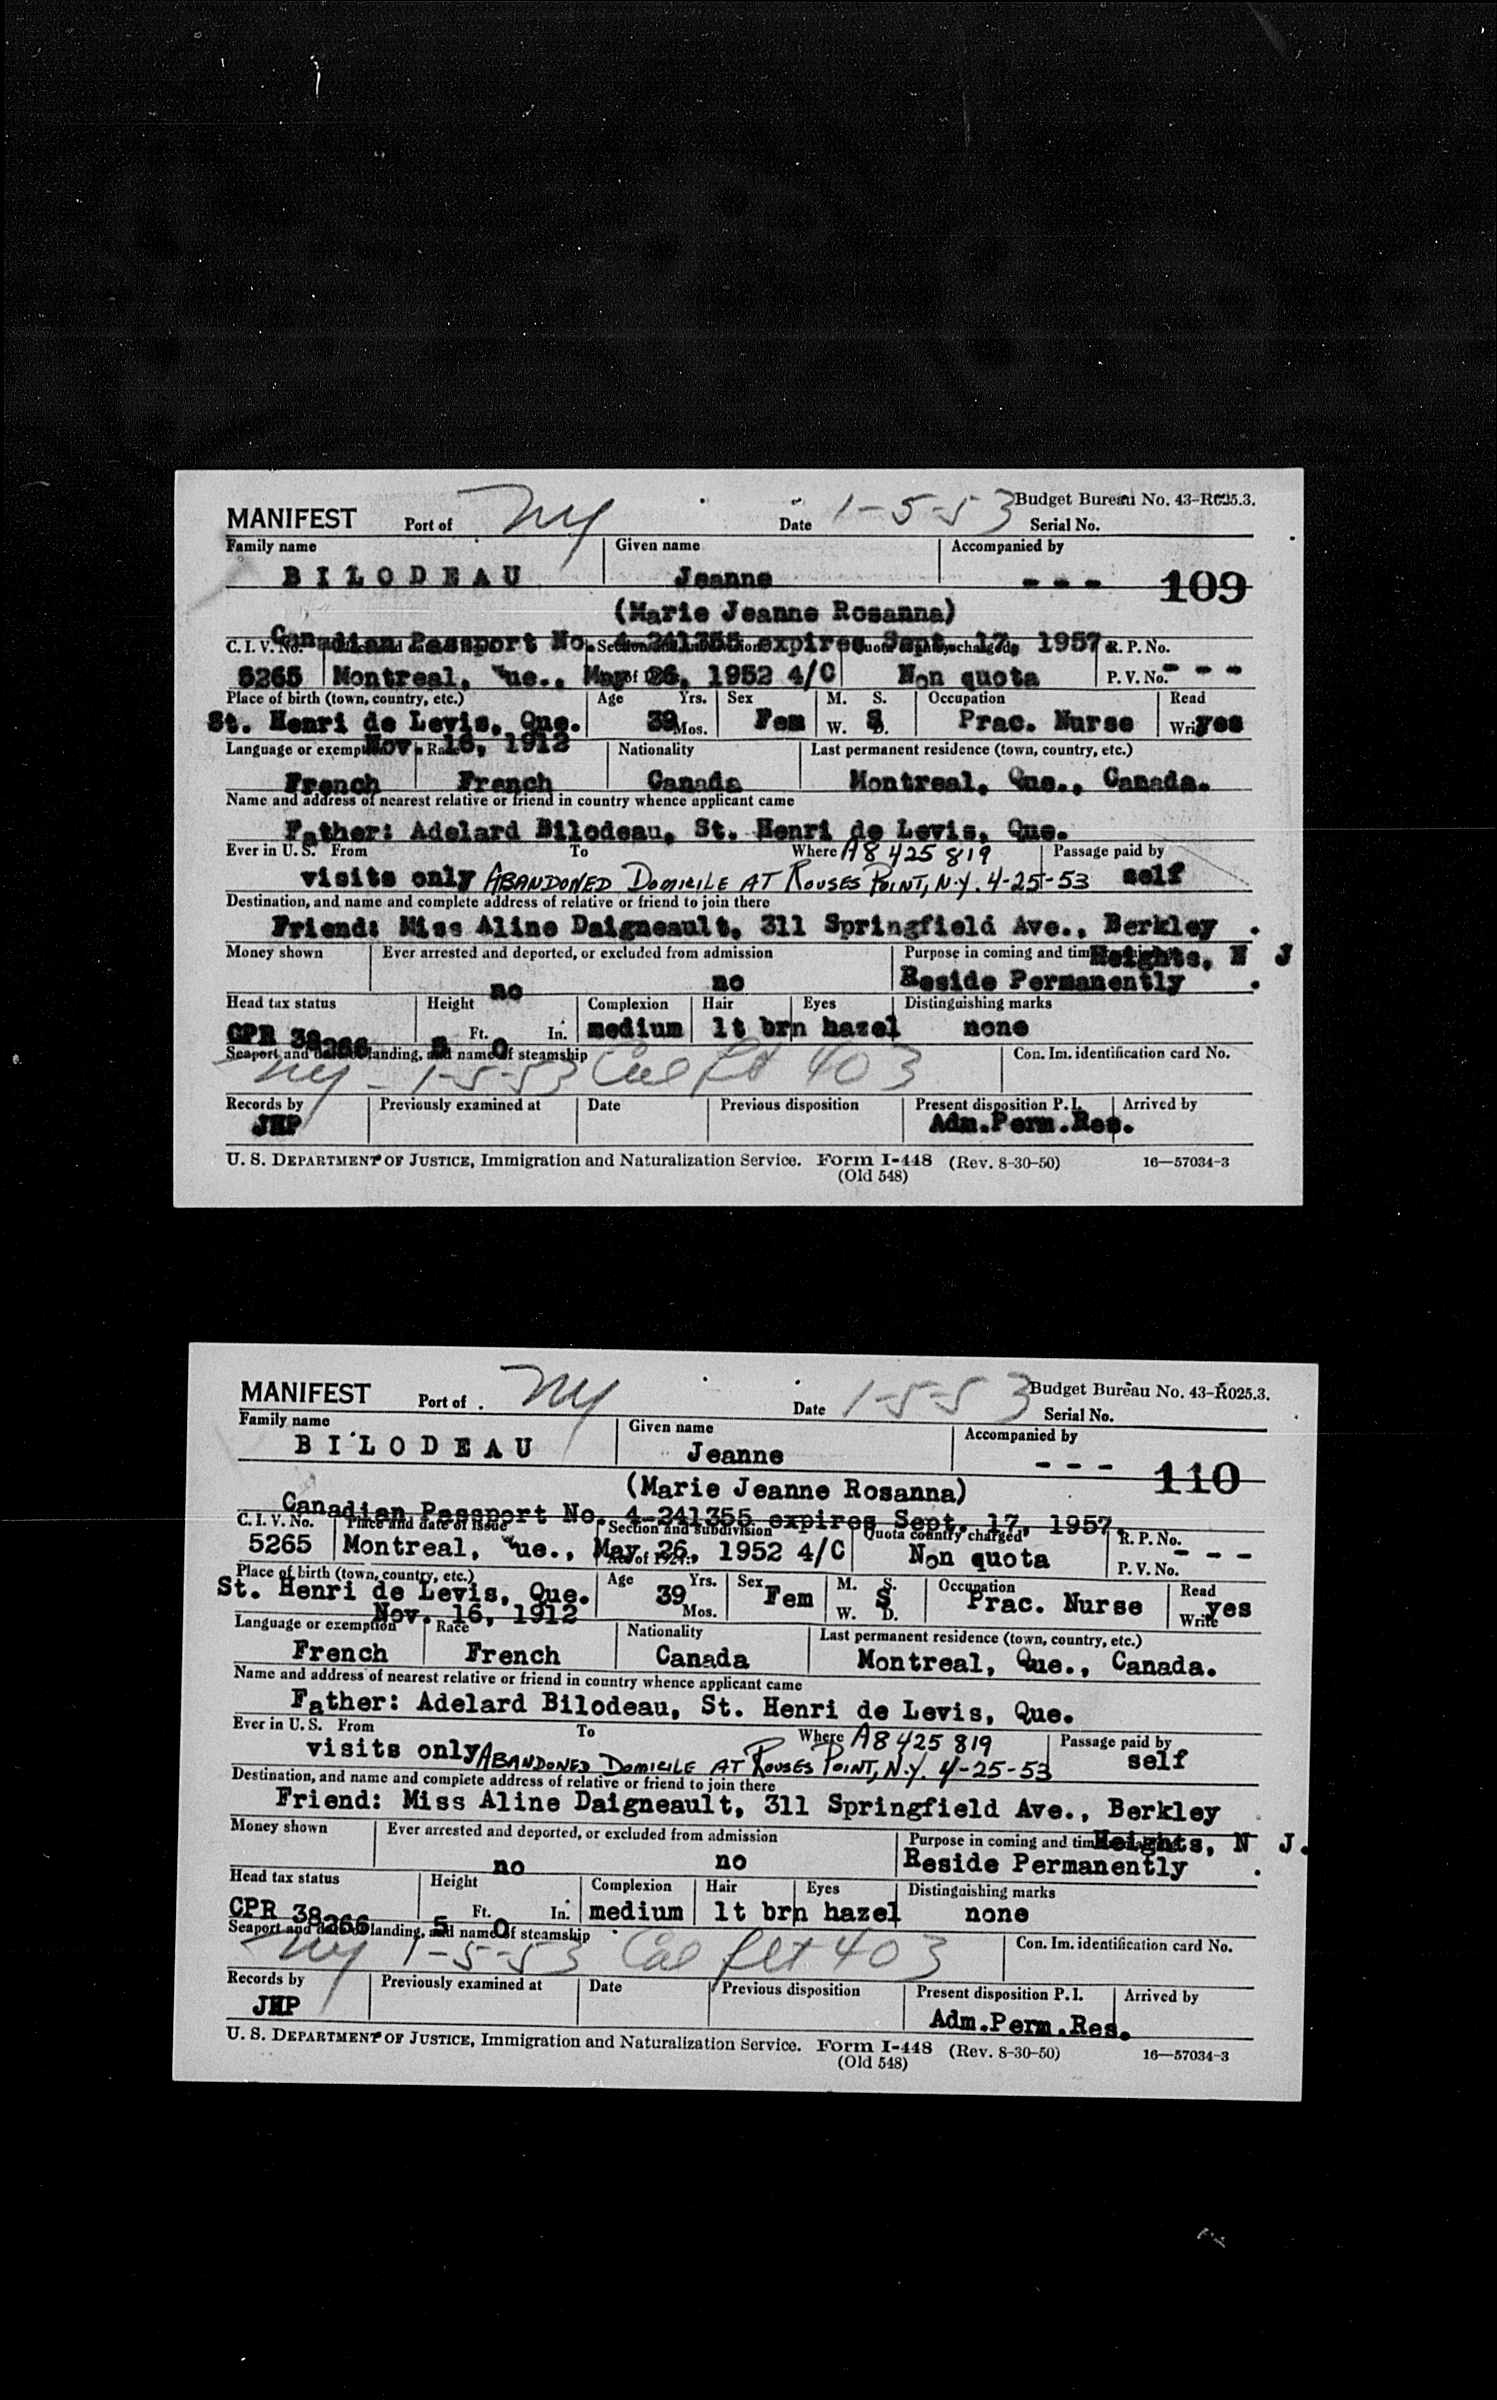 MANIFEST Port of NY Date 1-5-53 Budget Bureau No. 43-R025.3.
Serial No.
Family name Given name Accompanied by
BILODEAU Jeanne --- 109
(Marie Jeanne Rosanna)
Canadian Passport No. 4-241355 expires Sept. 17, 1957
C. I. V. No. Section R. P. No.
5265 Montreal, Que., May 26, 1952 4/C Non quota P. V. No. ---
Place of birth (town, country, etc.) Age Yrs. Sex M. S. Occupation Read
St. Henri de Levis, Que. 39 Mos. Fem W. S D. Prac. Nurse Write yes
Nov. 16, 1912
Language or exemption Race Nationality Last permanent residence (town, country, etc.)
French French Canada Montreal, Que., Canada.
Name and address of nearest relative or friend in country whence applicant came
Father: Adelard Bilodeau, St. Henri de Levis, Que.
Ever in U. S. From To Where A8 425 819 Passage paid by
visits only ABANDONED DOMICILE AT ROUSES POINT, N.Y. 4-25-53 self
Destination, and name and complete address of relative or friend to join there
Friend: Miss Aline Daigneault, 311 Springfield Ave., Berkley
Money shown Ever arrested and deported, or excluded from admission Purpose in coming and time Heights, N J
no no Reside Permanently .
Head tax status Height Complexion Hair Eyes Distinguishing marks
CPR 38266 5 Ft. 0 In. medium lt brn hazel none
Seaport and date of landing, and name of steamship Con. Im. identification card No.
NY - 1-5-53 Cal flt 403
Records by Previously examined at Date Previous disposition Present disposition P. I. Arrived by
JHP Adm.Perm.Res.
U. S. DEPARTMENT OF JUSTICE, Immigration and Naturalization Service. Form I-448 (Rev. 8-30-50) 16—57034-3
(Old 548)
MANIFEST Port of NY Date 1-5-53 Budget Bureau No. 43-R025.3.
Serial No.
Family name Given name Accompanied by
BILODEAU Jeanne --- 110
(Marie Jeanne Rosanna)
Canadian Passport No. 4-241355 expires Sept. 17, 1957
C. I. V. No. Place and date of issue Section and subdivision Quota country charged R. P. No.
5265 Montreal, Que., May 26, 1952 4/C Non quota ---
Act of 1924: P. V. No.
Place of birth (town, country, etc.) Age Yrs. Sex M. S. Occupation Read
St. Henri de Levis, Que. 39 Mos. Fem W. S D. Prac. Nurse Write yes
Nov. 16, 1912
Language or exemption Race Nationality Last permanent residence (town, country, etc.)
French French Canada Montreal, Que., Canada.
Name and address of nearest relative or friend in country whence applicant came
Father: Adelard Bilodeau, St. Henri de Levis, Que.
Ever in U. S. From To Where A8 425 819 Passage paid by
visits only ABANDONED DOMICILE AT ROUSES POINT, N.Y. 4-25-53 self
Destination, and name and complete address of relative or friend to join there
Friend: Miss Aline Daigneault, 311 Springfield Ave., Berkley
Money shown Ever arrested and deported, or excluded from admission Purpose in coming and time Heights, N J.
no no Reside Permanently .
Head tax status Height Complexion Hair Eyes Distinguishing marks
CPR 38266 5 Ft. 0 In. medium lt brn hazel none
Seaport and date of landing, and name of steamship Con. Im. identification card No.
NY 1-5-53 Cal flt 403
Records by Previously examined at Date Previous disposition Present disposition P. I. Arrived by
JHP Adm.Perm.Res.
U. S. DEPARTMENT OF JUSTICE, Immigration and Naturalization Service. Form I-448 (Rev. 8-30-50) 16—57034-3
(Old 548)